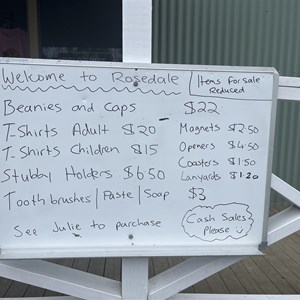 Welcome to Rosedale
Items for sale
Reduced
Beanies and caps $22
T-Shirts Adult $20
T-Shirts Children $15
Stubby Holders $6.50
Magnets $2.50
Openers $4.50
Coasters $1.50
Lanyards $1.20
Tooth brushes | Paste | Soap $3
See Julie to purchase
Cash Sales
Please